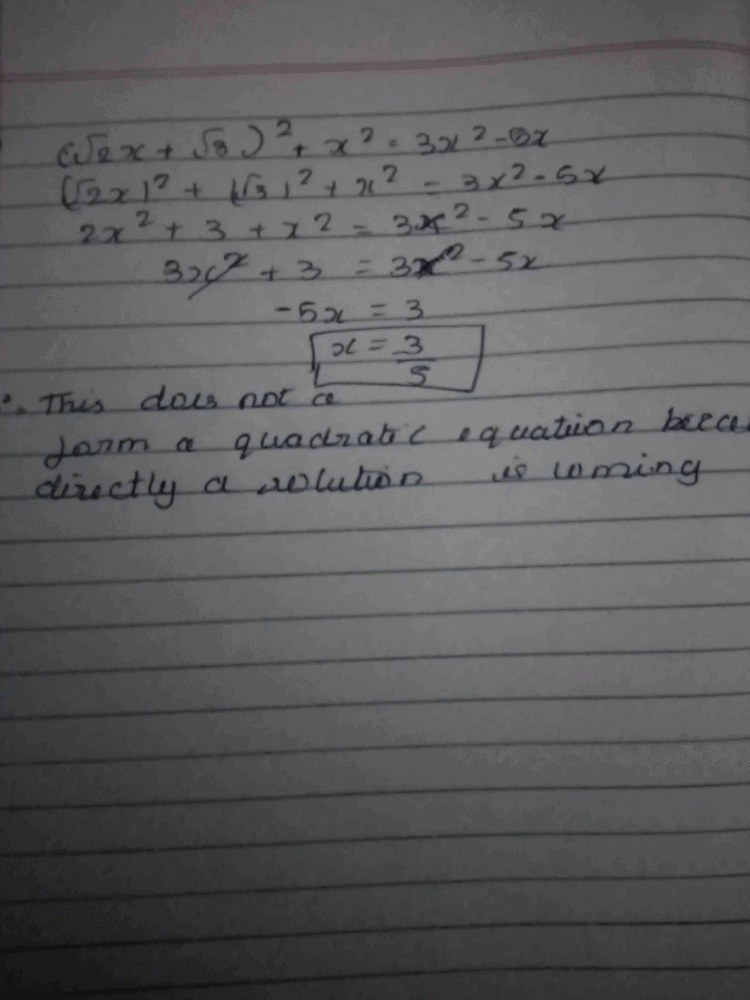 (√2x + √3)² + x² = 3x² - 5x
(√2x)² + (√3)² + x² = 3x² - 5x
2x² + 3 + x² = 3x² - 5x
3x² + 3 = 3x² - 5x
-5x = 3
x = 3/5
∴ This does not a
form a quadratic equation becau
directly a solution is coming